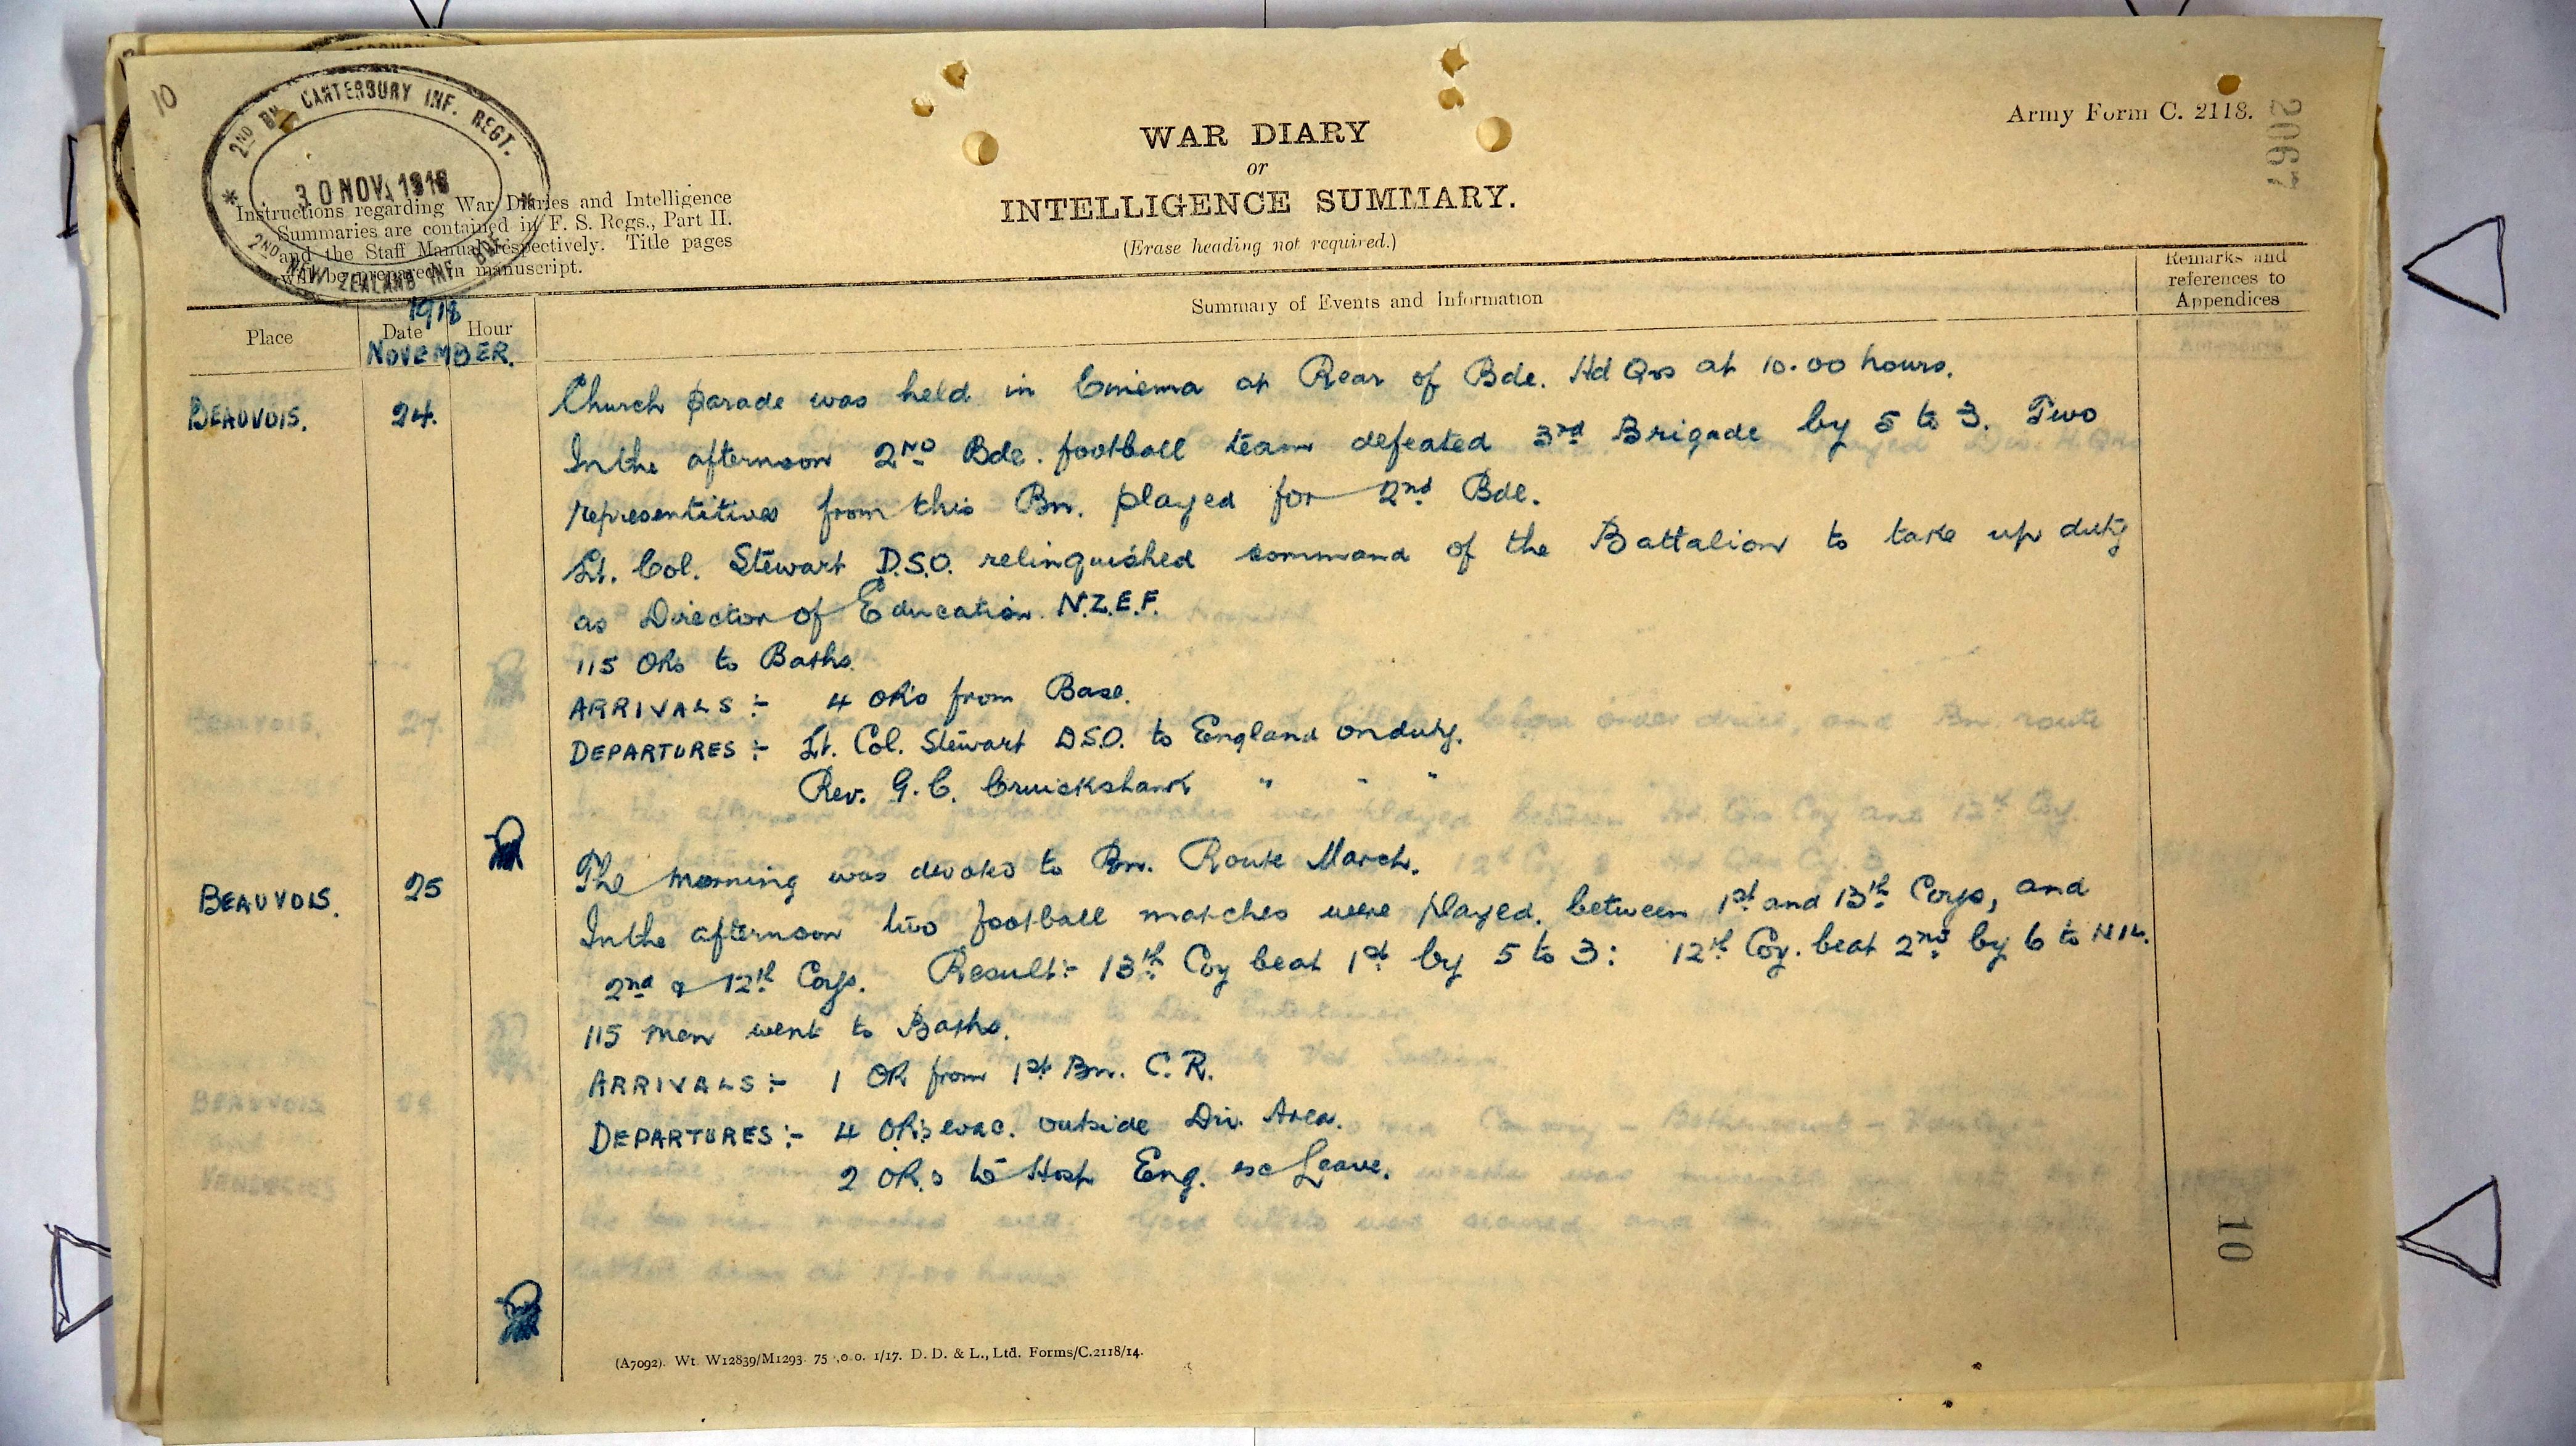 10
2ND BN. CANTERBURY INF. REGT.
30 NOV. 1918
2ND NEW ZEALAND INF. BDE.
Army Form C. 2118.
2067
WAR DIARY
or
INTELLIGENCE SUMMARY.
(Erase heading not required.)
Instructions regarding War Diaries and Intelligence
Summaries are contained in F. S. Regs., Part II.
and the Staff Manual respectively. Title pages
will be prepared in manuscript.
Place Date Hour Summary of Events and Information Remarks and references to Appendices
1918
NOVEMBER.
BEAUVOIS. 24. Church parade was held in Cinema at Rear of Bde. Hd Qrs at 10.00 hours.
In the afternoon 2ND Bde. football team defeated 3rd Brigade by 5 to 3. Two
representitives from this Bn. played for 2nd Bde.
Lt. Col. Stewart D.S.O. relinquished command of the Battalion to take up duty
as Director of Education N.Z.E.F.
115 ORs to Baths.
ARRIVALS :- 4 OR's from Base.
DEPARTURES :- Lt. Col. Stewart D.S.O. to England on duty.
Rev. G. C. Cruickshank " " "
BEAUVOIS. 25 The morning was devoted to Bn. Route March.
In the afternoon two football matches were played, between 1st and 13th Coys, and
2nd & 12th Coys. Result:- 13th Coy beat 1st by 5 to 3: 12th Coy. beat 2nd by 6 to NIL.
115 men went to Baths.
ARRIVALS :- 1 OR from 1st Bn. C.R.
DEPARTURES :- 4 OR's evac. outside Div. Area.
2 OR.s to Hosp Eng. ex Leave.
10
(A7092). Wt. W12839/M1293. 75 ,0 0. 1/17. D. D. & L., Ltd. Forms/C.2118/14.